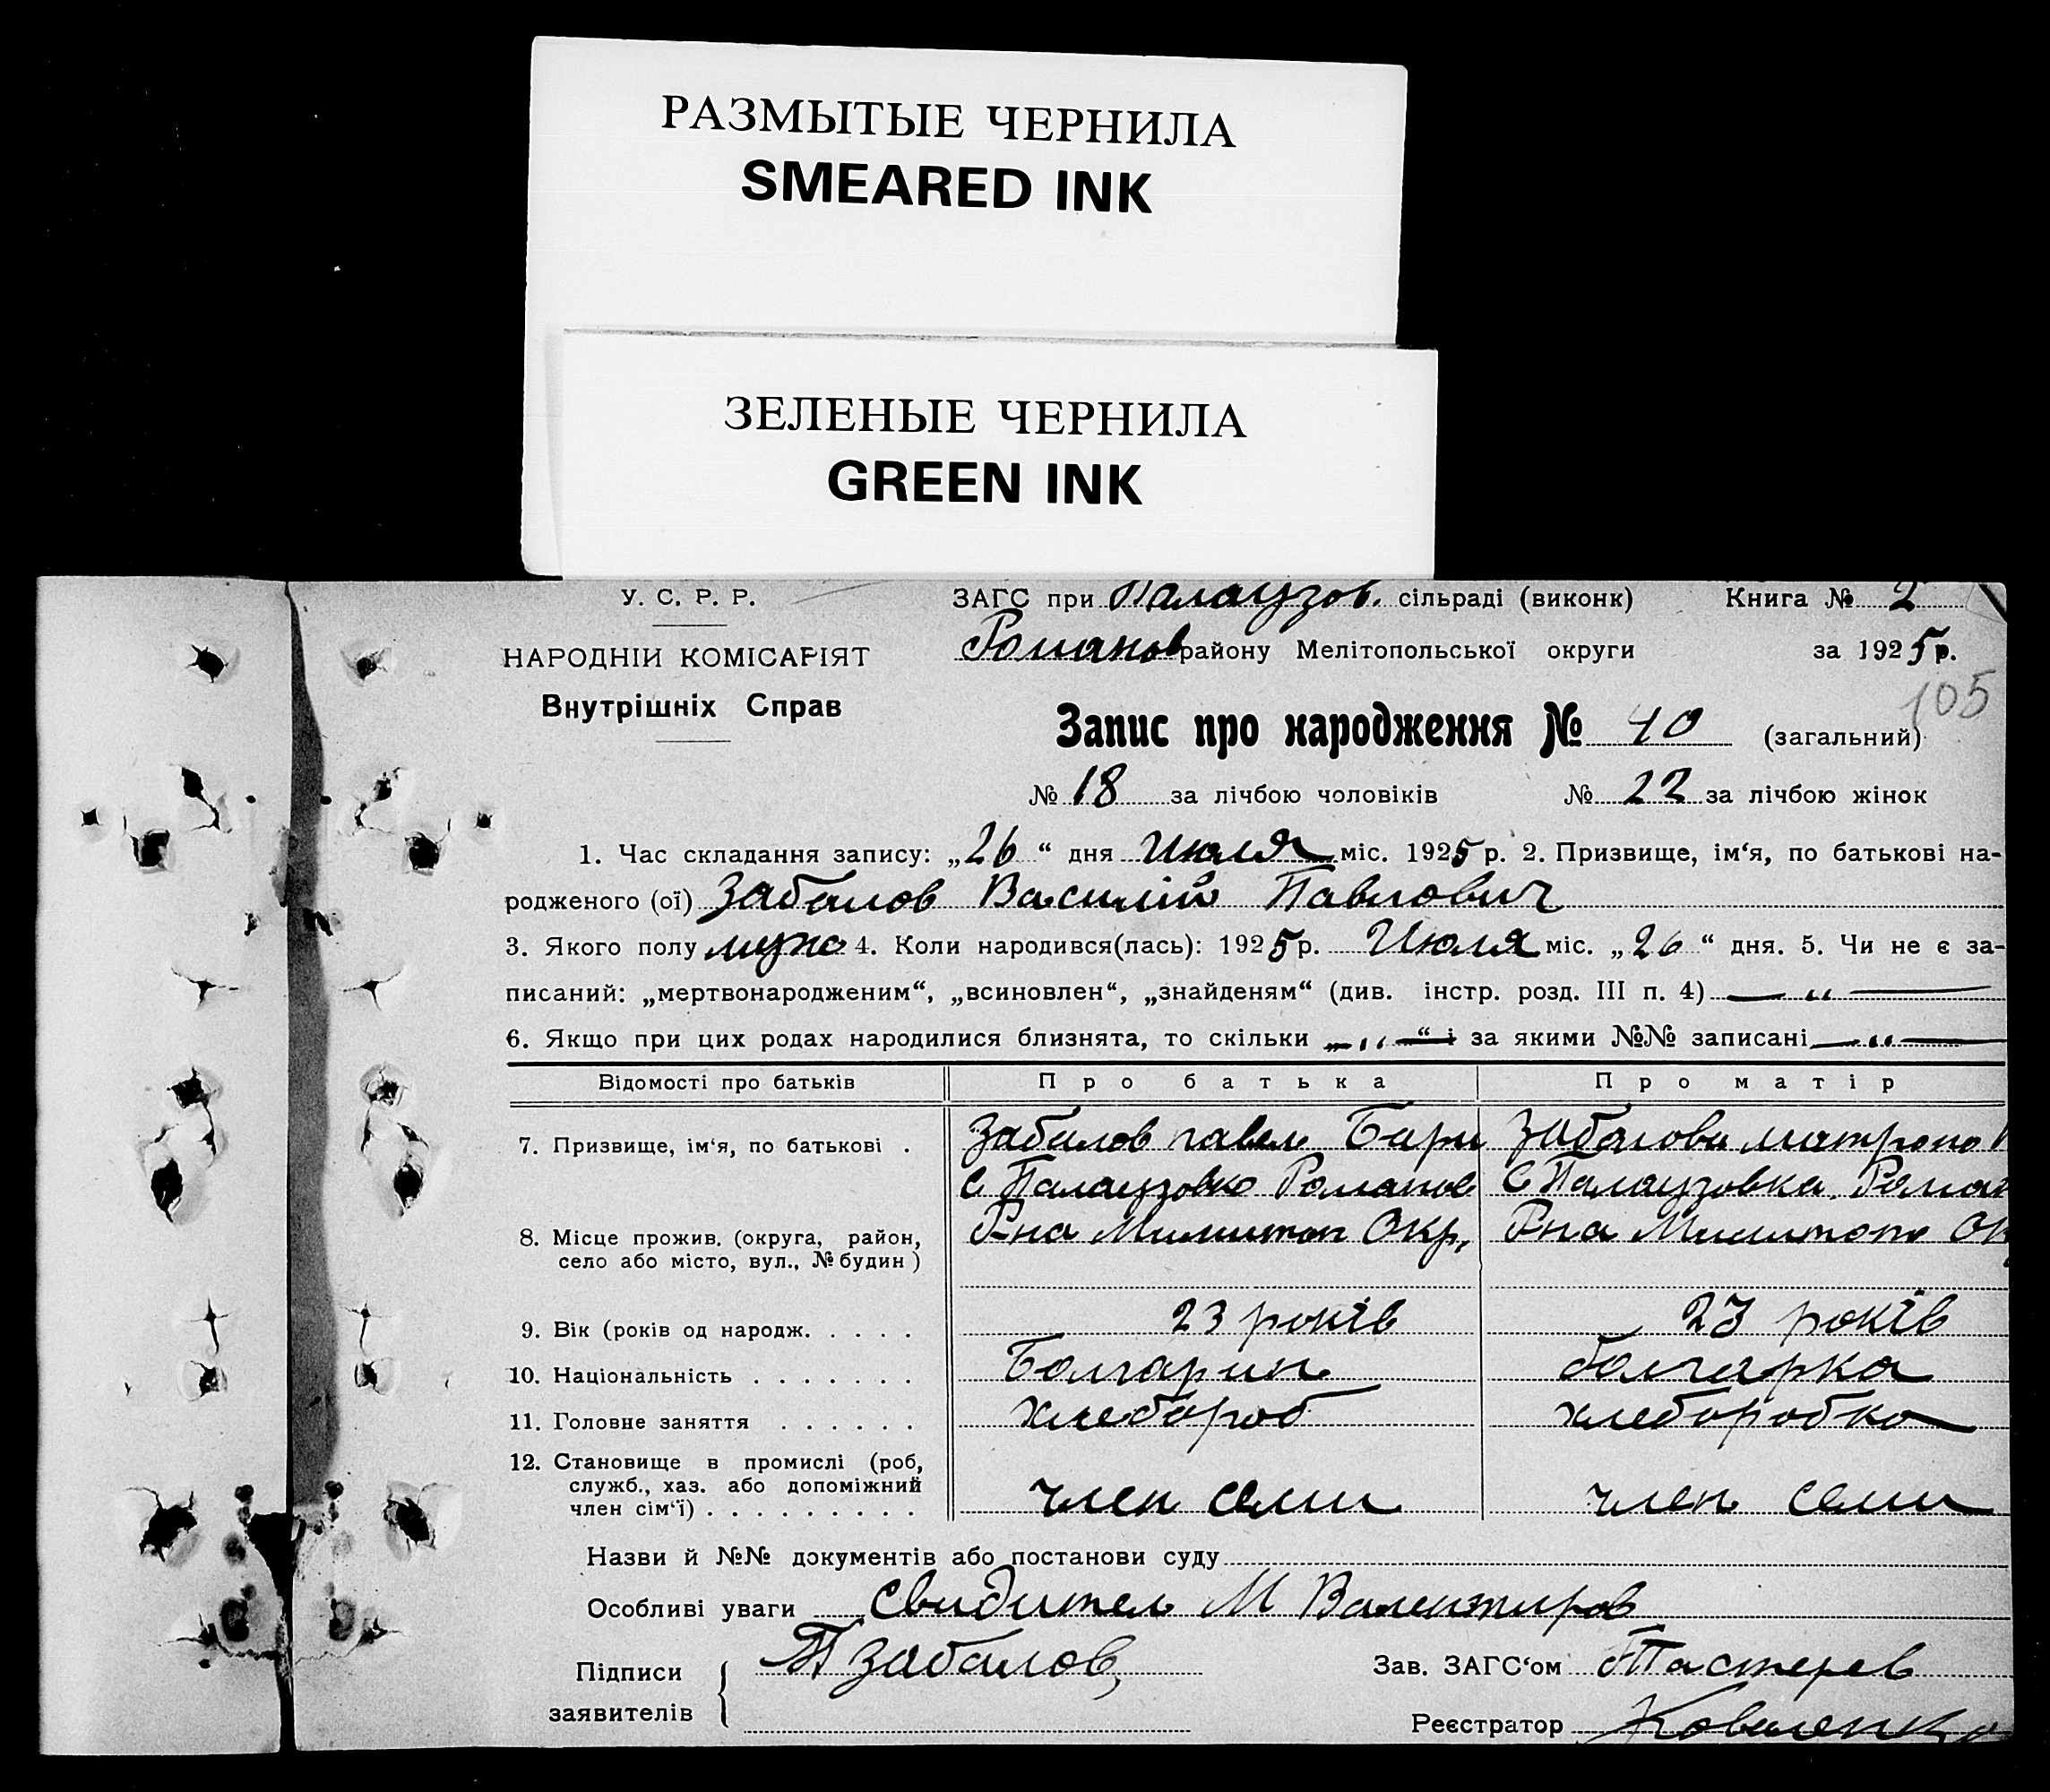 РАЗМЫТЫЕ ЧЕРНИЛА
SMEARED INK
ЗЕЛЕНЫЕ ЧЕРНИЛА
GREEN INK
У. С. Р. Р.
НАРОДНІЙ КОМІСАРІЯТ
Внутрішніх Справ
ЗАГС при Палаузов. сільраді (виконк) Книга № 2
Романов району Мелітопольської округи за 1925 р.
105
Запис про народження № 40 (загальний)
№ 18 за лічбою чоловіків № 22 за лічбою жінок
1. Час складання запису: „26“ дня Июля міс. 1925 р. 2. Призвище, ім‘я, по батькові на-
родженого (ої) Забалов Василій Павлович
3. Якого полу муж 4. Коли народився(лась): 1925 р. Июля міс. „26“ дня. 5. Чи не є за-
писаний: „мертвонародженим“, „всиновлен“, „знайденям“ (див. інстр. розд. III п. 4) — „ —
6. Якщо при цих родах народилися близнята, то скільки „ — „ — “ і за якими №№ записані — „ —
Відомості про батьків Про батька Про матір
7. Призвище, ім‘я, по батькові . Забалов павел Забалова матрона
С Палаузовка Романов С Палаузовка. Роман
8. Місце прожив. (округа, район, Р-на Милитоп Окр. Р-на Милитоп Ок
село або місто, вул., № будин )
9. Вік (років од народж. . . . . 23 років 23 років
10. Національність . . . . . . . Болгарин болгарка
11. Головне заняття . . . . . . хлебороб хлеборобка
12. Становище в промислі (роб,
служб., хаз. або допоміжний
член сім‘ї) . . . . . . . . . член семи член семи
Назви й №№ документів або постанови суду
Особливі уваги Свидител М Валентиров
Підписи П Забалов, Зав. ЗАГС‘ом Пастерев
заявителів Реєстратор Коваленко